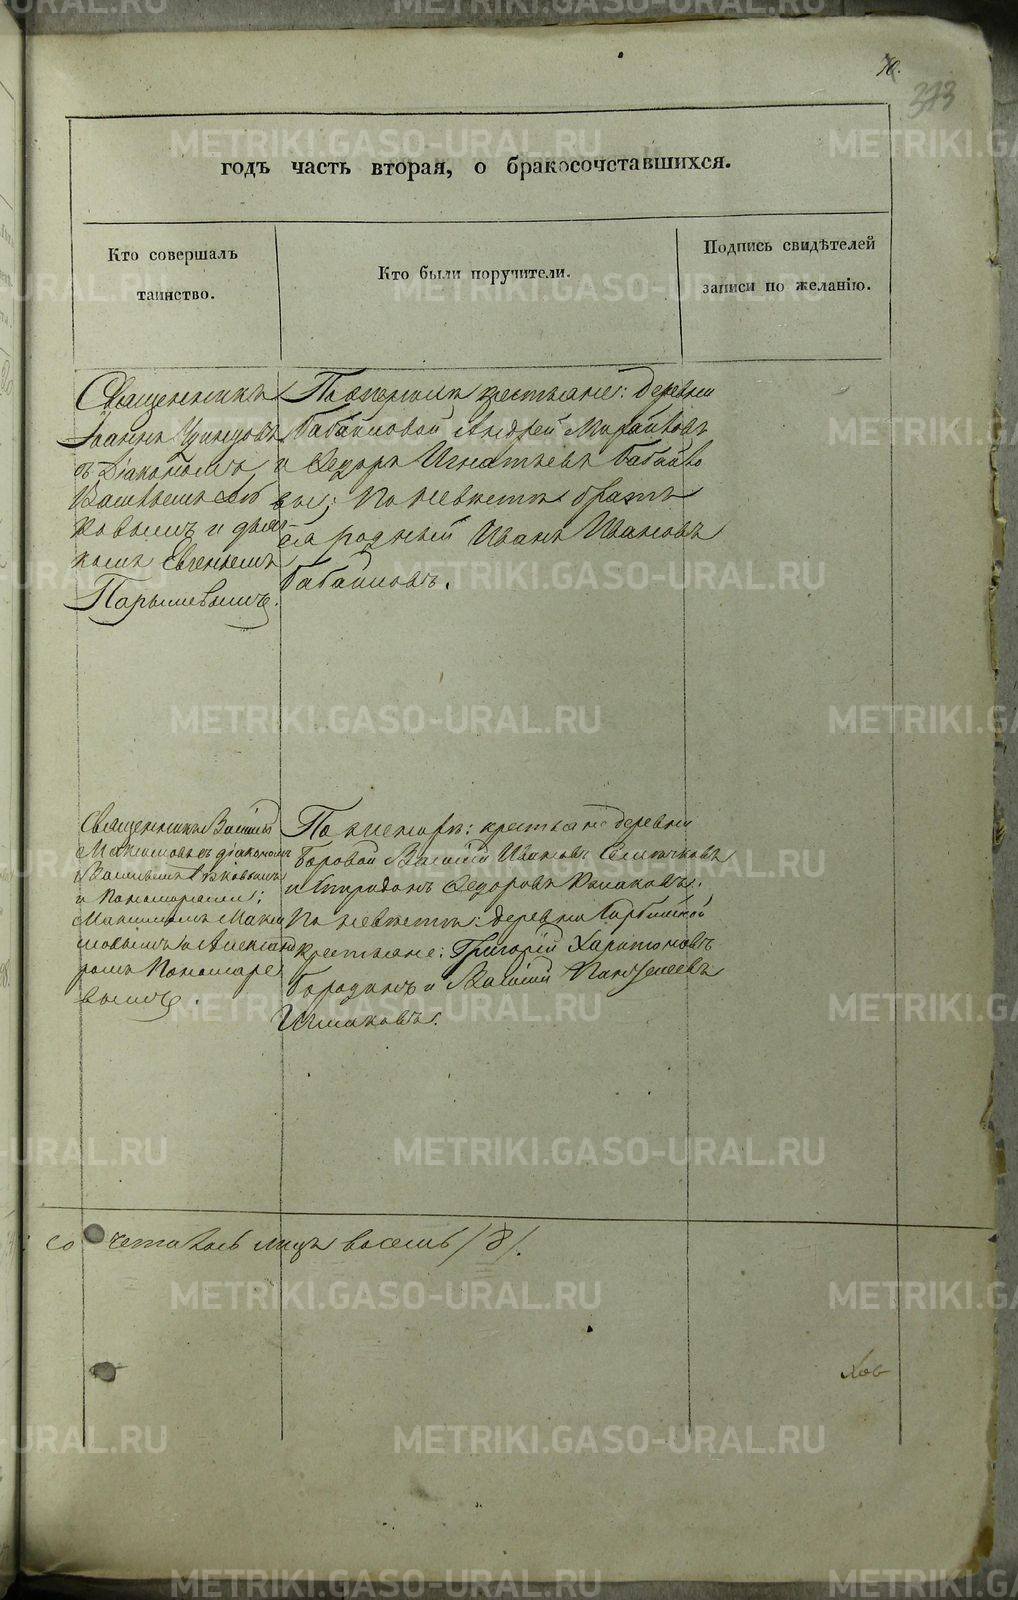 70.
373
годъ часть вторая, о бракосочетавшихся.
Кто совершалъ
таинство.
Кто были поручители.
Подпись свидѣтелей
записи по желанію.
Священникъ
Іоаннъ
съ Діакономъ
Василіемъ
ковымъ и дьяч-
комъ Евгеніемъ
Парышевымъ.
По женихѣ крестьяне: деревни
Бабаиновой Андрей
и Ѳедоръ Игнатьевъ
вы; по невѣстѣ братъ
ея родный Иванъ Ивановъ
Бабаиновъ.
Священникъ Василій
Максимовъ съ діакономъ
Василіемъ
и Пономарями:
Максимомъ Макси
мовымъ и Александ
ромъ Пономаре
вымъ.
По женихѣ: крестьяне деревни
Боровой Василій Ивановъ
и Спиридонъ Ѳедоровъ
По невѣстѣ: деревни
крестьяне: Григорій Харитоновъ
Бородинъ и Василій Пантелеевъ
Ишмаковъ.
сочеталось лицъ восемь /8/.
METRIKI.GASO-URAL.RU